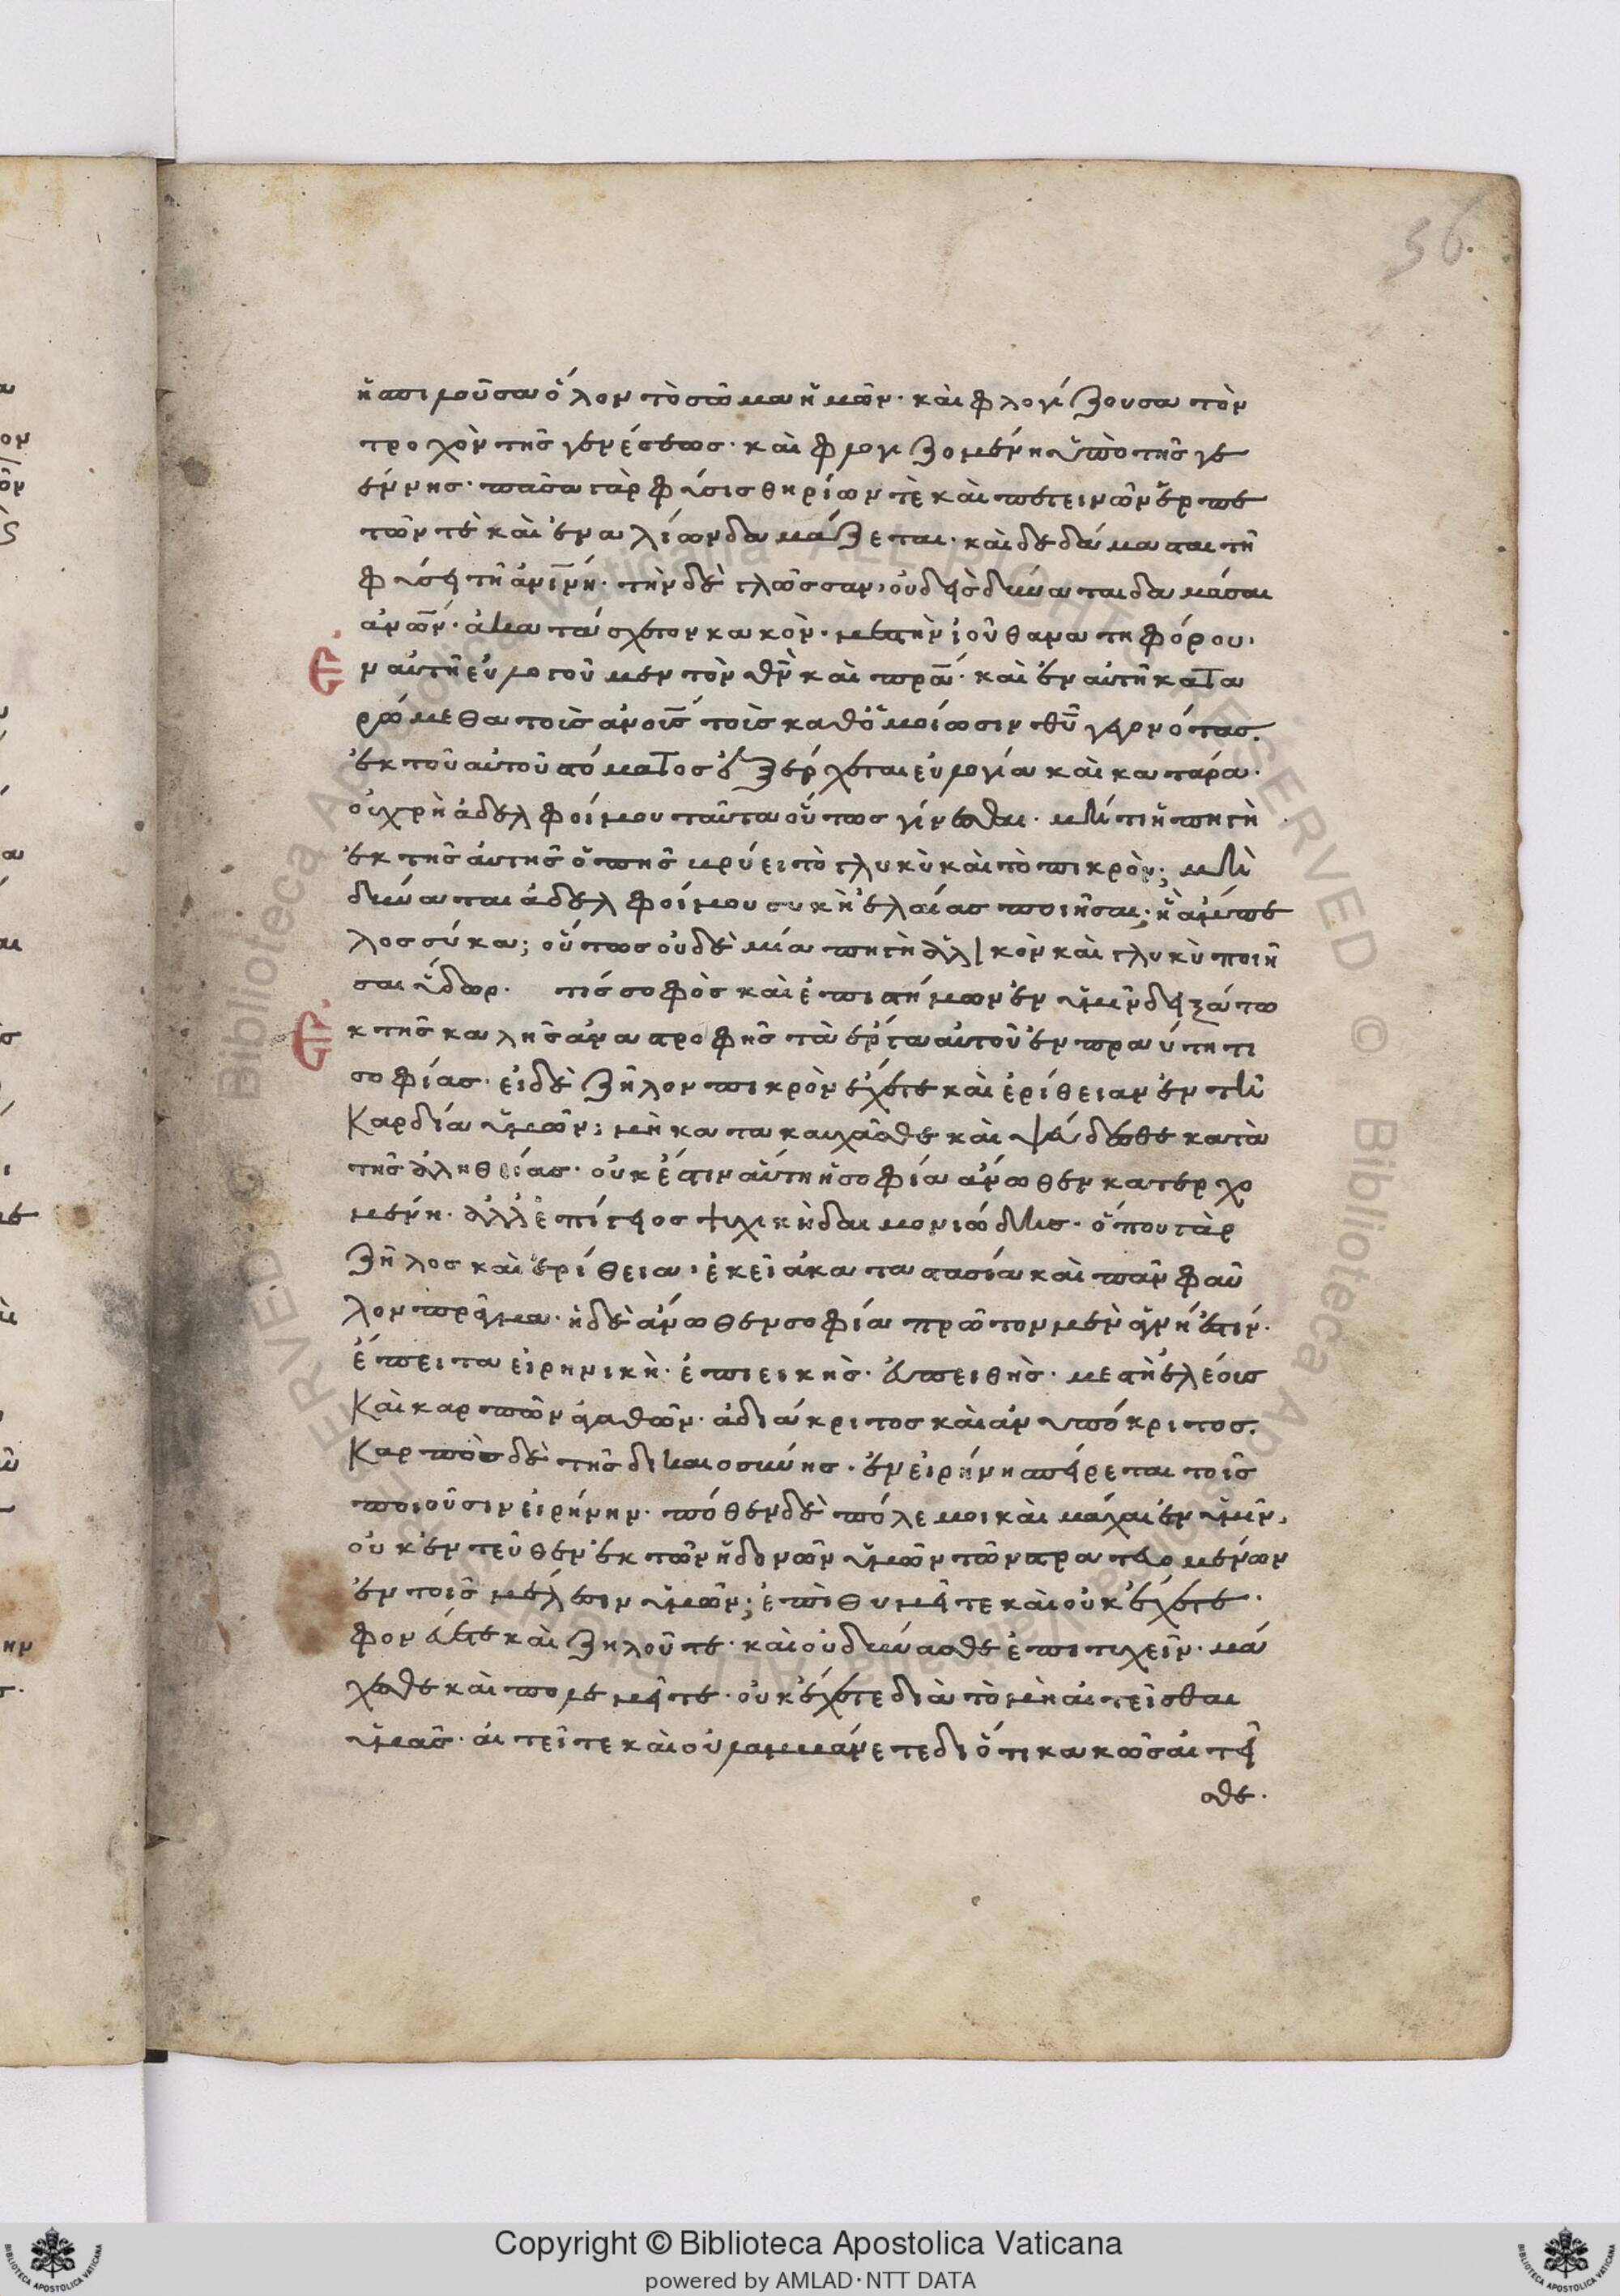 56.
ἡ σπιλοῦσα ὅλον τὸ σῶμα ἡμῶν· καὶ φλογίζουσα τὸν
τροχὸν τῆς γενέσεως· καὶ φλογιζομένη ὑπὸ τῆς γε
έννης· πᾶσα γὰρ φύσις θηρίων τὲ καὶ πετεινῶν ἑρπε
τῶν τὲ καὶ ἐναλίων δαμάζεται· καὶ δεδάμασται τῆ
φύσει τῆ ἀνίνη· τὴν δὲ γλῶσσαν, οὐδεὶς δύναται δαμάσαι
ἀνων· ἀκατάσχετον κακὸν· μεστὴν ἰοῦ θανατηφόρου,
Εν αὐτῆ εὐλογοῦμεν τὸν θν καὶ πρα· καὶ ἐν αὐτῆ κατα
ρώμεθα τοὺς ἀνους τοὺς καθ ὁμοίωσιν θυ γεγονότας.
ἐκ τοῦ αὐτοῦ στόματος ἐξέρχεται εὐλογία καὶ κατάρα·
οὐ χρὴ ἀδελφοί μου ταῦτα οὕτως γίνεσθαι· μήτι ἡ πηγὴ
ἐκ τῆς αὐτῆς ὀπῆς βρύει τὸ γλυκὺ καὶ τὸ πικρὸν; μὴ
δύναται ἀδελφοί μου συκῆ ἐλαίας ποιῆσαι; ἢ ἄμπε
λος σύκα; οὕτως οὐδὲ μία πηγὴ ἁλικὸν καὶ γλυκὺ ποιῆ
σαι ὕδωρ. τίς σοφὸς καὶ ἐπιστήμων ἐν ὑμῖν δειξάτω
Εκ τῆς καλῆς ἀναστροφῆς τὰ ἔργα αὐτοῦ ἐν πραύτητι
σοφίας· εἰ δὲ ζῆλον πικρὸν ἔχετε καὶ ἐρίθειαν ἐν τῆ
Καρδία ὑμῶν; μὴ κατακαυχᾶσθε καὶ ψεύδεσθε κατὰ
τῆς ἀληθείας· οὐκ ἔστιν αὕτη ἡ σοφία ἄνωθεν κατερχο
μένη· ἀλλ ἐπίγειος ψυχικὴ δαιμονιώδης· ὅπου γὰρ
ζῆλος καὶ ἐρίθεια, ἐκεῖ ἀκαταστασία καὶ πᾶν φαῦ
λον πρᾶγμα· ἡ δὲ ἄνωθεν σοφία πρῶτον μὲν ἁγνή ἐστιν·
ἔπειτα εἰρηνικὴ· ἐπιεικὴς· εὐπειθὴς· μεστὴ ἐλέους
Καὶ καρπῶν ἀγαθῶν· ἀδιάκριτος καὶ ἀνυπόκριτος.
Καρπὸς δὲ τῆς δικαιοσύνης· ἐν εἰρήνη σπείρεται τοῖς
ποιοῦσιν εἰρήνην· πόθεν δὲ πόλεμοι καὶ μάχαι ἐν ὑμῖν,
οὐκ ἐντεῦθεν ἐκ τῶν ἡδονῶν ὑμῶν τῶν στρατευομένων
ἐν τοῖς μέλεσιν ὑμῶν; ἐπιθυμεῖτε καὶ οὐκ ἔχετε·
φονεύετε καὶ ζηλοῦτε· καὶ οὐ δύνασθε ἐπιτυχεῖν· μά
χεσθε καὶ πολεμεῖτε· οὐκ ἔχετε διὰ τὸ μὴ αἰτεῖσθαι
ὑμᾶς· αἰτεῖτε καὶ οὐ λαμβάνετε διότι κακῶς αἰτεῖ
σθε·
Copyright © Biblioteca Apostolica Vaticana
powered by AMLAD·NTT DATA